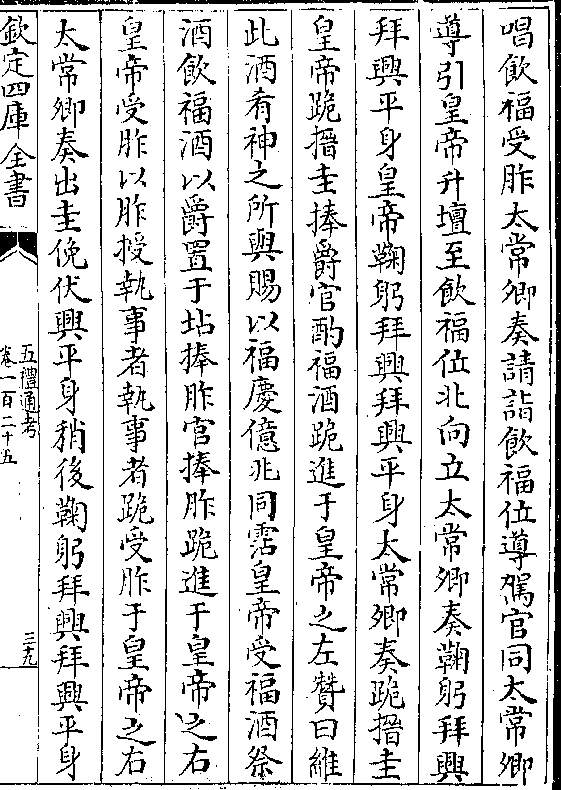 唱飲福受胙太常卿奏請詣飲福位導駕官同太常卿
導引皇帝升壇至飲福位北向立太常卿奏鞠躬拜興
拜興平身皇帝鞠躬拜興拜興平身太常卿奏跪搢圭
皇帝跪搢圭捧爵官酌福酒跪進于皇帝之左贊曰維
此酒肴神之所與賜以福慶億兆同霑皇帝受福酒祭
酒飲福酒以爵置于坫捧胙官捧胙跪進于皇帝之右
皇帝受胙以胙授執事者執事者跪受胙于皇帝之右
太常卿奏出圭俛伏興平身稍後鞠躬拜興拜興平身
欽定四庫全書
五禮通考
卷一百二十五
三九